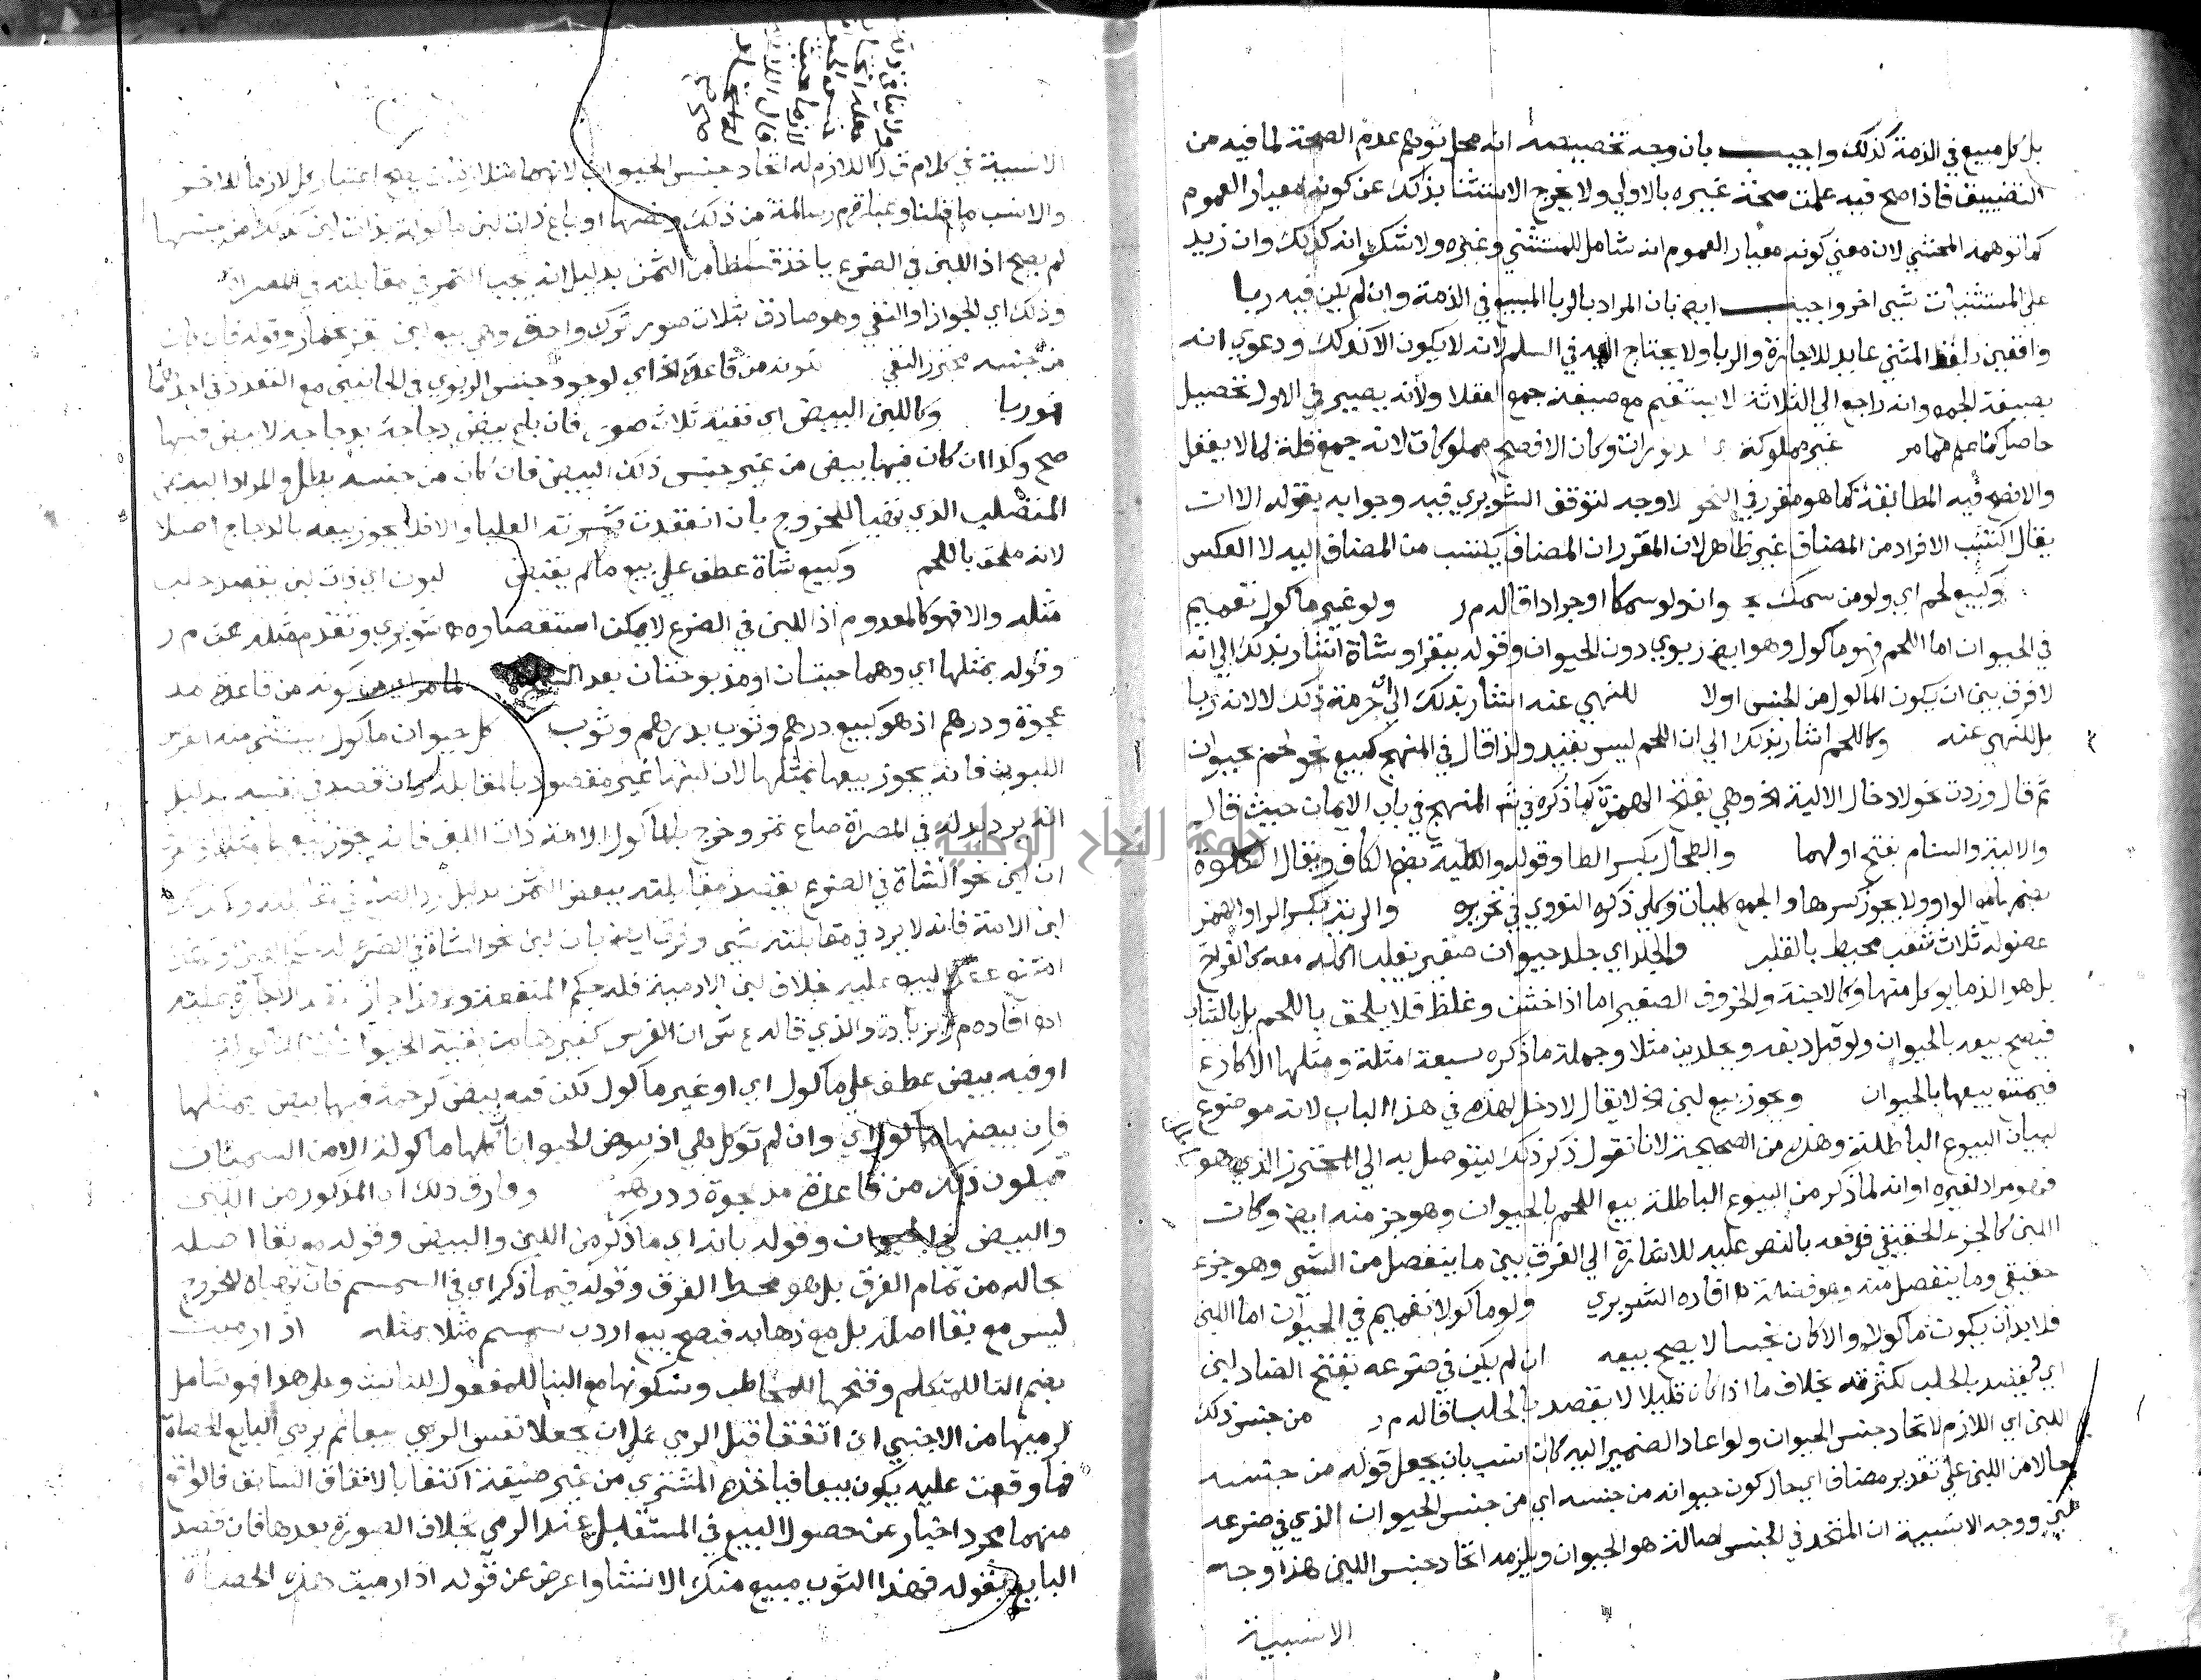 بل كل مبيع في الذمة كذلك واجيب بان وجه تخصيصه انه محل توهم عدم الصحة لما فيه من
التضييق فاذا صح فيه علمت صحة غيره بالاولي ولا يخرج الاستثنا بذلك عن كونه معيار العموم
كما توهمه المحشي لان معني كونه معيار العموم انه شامل للمستثني وغيره ولا شك انه كذلك وان زيد
علي المستثنيات شيي اخر واجيب ايض بان المراد بالربا المبيع في الذمة وان لم يكن فيه ربا
وافقين بلفظ المثني عايد للاجارة والربا ولا يحتاج اليه في السلم لانه لا يكون الا كذلك ودعوي انه
بصيغة الجمع وانه راجع الي الثلاثة لا يستقيم مع صيغة جمع العقلا ولانه يصير في الاول تحصيل
حاصل كما علم مما مر غير مملوكة وكان الافصح مملوكات لانه جمع قلة لما لا يعقل
والافصح فيه المطابقة كما هو مقرر في النحو لا وجه لتوقف الشوبري فيه وجوابه بقوله الا ان
يقال اكتسب الافراد من المضاف غير ظاهر لان المقرر ان المضاف يكتسب من المضاف اليه لا العكس
وكبيع لحم اي ولو من سمك وان ولو سمكا او جرادا قاله م ر ولو غير ماكول تعميم
في الحيوان اما اللحم فهو ماكول وهو ايض ربوي دون الحيوان وقوله ببقر او شاة اشار بذلك الي انه
لا فرق بين ان يكون الماكول من الجنس او لا للنهي عنه اشار بذلك الي حرمة ذلك لا لانه ربا
بل للنهي عنه وكاللحم اشار بذلك الي ان اللحم ليس بقيد ولذا قال في المنهج كبيع نحو لحم بحيوان
ثم قال وزدت نحو لادخال الالية الخ وهي بفتح الهمزة كما ذكره في شرح المنهج في باب الايمان حيث قال
والالية والسنام بفتح اولهما والطحال بكسر الطا وقوله والكلية بضم الكاف ويقال الكلوة
بضم بالواو ولا يجوز كسرها والجمع كليات وكلي ذكره النووي في تحريره والرية بكسر الرا والهمز
عضو له ثلاث شعب محيط بالقلب والجلد اي جلد حيوان صغير يغلب اكله معه كالفراخ
بل هو الذ ما يوكل منها وكالاجنة والخروف الصغير اما اذا خشن وغلظ فلا يلحق باللحم بل بالثياب
فيصح بيعه بالحيوان ولو قبل دبغه وبجلدين مثلا وجملة ما ذكره سبعة امثلة ومثلها الاكارع
فيمتنع بيعها بالحيوان ويجوز بيع لبن الخ لا يقال لا دخل لهذه في هذا الباب لانه موضوع
لبيان البيوع الباطلة وهذه من الصحيحة لانا نقول ذكر ذلك ليتوصل به الي المحترز الذي هو
فهو مراد لغيره او انه لما ذكر من البيوع الباطلة بيع اللحم بالحيوان وهو جز منه ايض وكان
اللبن كالجزء الحقيقي فرفعه بالنص عليه للاشارة الي الفرق بين ما ينفصل من الشي وهو جزء
حقيقي وما ينفصل منه وهو فضلة افاده الشوبري ولو ماكولا تعميم في الحيوان اما اللبن
فلا بد ان يكون ماكولا والا كان نجسا لا يصح بيعه ان لم يكن في ضرعه بفتح الضاد لبن
اي يقصد بالحلب لكثرته بخلاف ما اذا كان قليلا لا يقصد بالحلب قاله م ر من جنس ذلك
اللبن اي اللازم لاتحاد جنس الحيوان ولو اعاد الضمير اليه كان انسب بان يجعل قوله من جنسه
حالا من اللبن علي تقدير مضاف اي حال كون حيوانه من جنسه اي من جنس الحيوان الذي في ضرعه
لبن ووجه الانسبية ان المتحد في الجنس اصالة هو الحيوان ويلزمه اتحاد جنس اللبن هذا وجه
الانسبية
الانسبية في كلام ق ل اللازم له اتحاد جنس الحيوان لانهما متلازمان يصح اعتبار كل لازما للاخر
والانسب ما قلنا وعبارة م ر سالمة من ذلك ونصها او باع ذات لبن ماكولة بذات لبن كذلك من جنسها
لم يصح اذ اللبن في الضرع ياخذ قسطا من الثمن بدليل انه يجب التمر في مقابلته في المصراة
وذلك اي الجواز او النفي وهو صادق بثلاث صور ترك واحدة وهي بيع لبن بقر بحمار وقوله فان كان
من جنسه محترز النفي كونه من قاعدة الخ اي لوجود جنس الربوي في الجانبين مع التعدد في احدهما
فهو ربا وكاللبن البيض اي ففيه ثلاث صور فان باع بيض دجاجة بدجاجة لا بيض فيها
صح وكذا ان كان فيها بيض من غير جنس ذلك البيض فان كان من جنسه بطل والمراد البيض
المتصلب الذي تهيا للخروج بان انعقدت قشرته العليا والا فلا يجوز بيعه بالدجاج اصلا
لانه ملحق باللحم وكبيع شاة عطف علي بيع ما لم يقبض لبون اي ذات لبن يقصد حلب
مثله والا فهو كالمعدوم اذ اللبن في الضرع لا يمكن استقصاوه شوبري وتقدم مثله عن م ر
وقوله بمثلها اي وهما حيتان او مذبوحتان بعد لما مر اي من كونه من قاعدة مد
عجوة ودرهم اذ هو كبيع درهم وثوب بدرهم وثوب كل حيوان ماكول يستثني منه الفرس
اللبون فانه يجوز بيعها بمثلها لان لبنها غير مقصود بالمقابلة وان قصد في نفسه بدليل
انه يرد بدله في المصراة صاع تمر وخرج بالماكول الامة ذات اللبن فانه يجوز بيعها بمثلها وفرق
ان لبن نحو الشاة في الضرع يقصد مقابلته ببعض الثمن بدليل رد الصاع في مقابلته
لبن الامة فانه لا يرد في مقابلته شي وفرق ايض بان لبن نحو الشاة في الضرع له حكم العين ولهذا
امتنع عقد البيع عليه بخلاف لبن الادمية فله حكم المنفعة ولهذا جاز عقد الاجارة عليه
اه افاده م ر بزيادة والذي قاله ع ش ان الفرس كغيرها من بقية الحيوانات الماكولة
او فيه بيض عطف علي ماكول اي او غير ماكول لكن فيه بيض كرخمة فيها بيض بمثلها
فان بيضها ماكول اي وان لم توكل هي اذ بيوض الحيوانات كلها ماكولة الا من السميات
فيكون ذلك من قاعدة مد عجوة ودرهم وفارق ذلك اي المذكور من اللبن
والبيض في الحيوان وقوله بانه اي ما ذكر من اللبن والبيض وقوله مع بقا اصله
بحاله من تمام الفرق بل هو محط الفرق وقوله فيما ذكر اي في السمسم فان تهياه للخروج
ليس مع بقا اصله بل مع ذهابه فيصح بيع اردب سمسم مثلا بمثله اذا رميت
بضم التا للمتكلم وفتحها للمخاطب وسكونها مع البنا للمفعول للتانيث وعلي هذا فهو شامل
لرميها من الاجنبي اي اتفقا قبل الرمي علي ان يجعلا نفس الرمي بيعا ثم يرمي البايع الحصاة
فما وقعت عليه يكون بيعا فياخذه المشتري من غير صيغة اكتفا بالاتفاق السابق فالواقع
منهما مجرد اخبار عن حصول البيع في المستقبل عند الرمي بخلاف الصورة بعدها فان قصد
البايع بقوله فهذا الثوب مبيع منك الانشا واعرض عن قوله اذا رميت هذه الحصاة